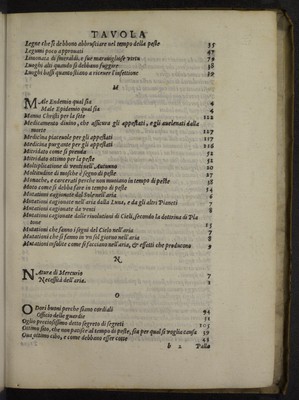 TAVOLA
Legne che si debbono abbrusciare nel tempo della peste 35
Legumi poco approuati 47
Limonata di smeraldi, e sue marauigliose virtu 79
Luoghi alti quando si debbano fuggire 38
Luoghi bassi quanto siano a riceuer l'infettione 39
M
MAle Endemio qual sia 4
Male Epidemio qual sia 4
Manus Christi per la sete 112
Medicamento diuino, che assicura gli appestati, e gli auelenati dalla
morte 127
Medicina piaceuole per gli appestati 117
Medicina purgante per gli appestati 118
Mitridato come si prenda 52
Mitridato ottimo per la peste 51
Moltiplicatione di venti nell'Autunno 20
Moltitudine di mosche è segno di peste 27
Monache, e carcerati perche non muoiano in tempo di peste 38
Moto come si debba fare in tempo di peste 54
Mutationi cagionate dal Sole nell'aria 6
Mutationi cagionate nell'aria dalla Luna, e da gli altri Pianeti 7
Mutationi cagionate da venti 8
Mutationi cagionate dalle riuolutioni di Cieli, secondo la dottrina di Pla
tone 15
Mutationi che fanno i segni del Cielo nell'aria 7
Mutationi che si fanno in vn sol giorno nell'aria 8
Mutationi insolite come si facciano nell'aria, & effetti che producano 9
N
NAtura di Mercurio 7
Necessità dell'aria. 2
O
ODori buoni perche siano cordiali 94
Officio delle guardie 31
Oglio pretiosissimo detto segreto di segreti 103
Ottimo sito, che non patisce al tempo di peste, sia per qual si voglia causa 39
Oua ottimo cibo, e come debbano esser cotte 45
b 2 Palla